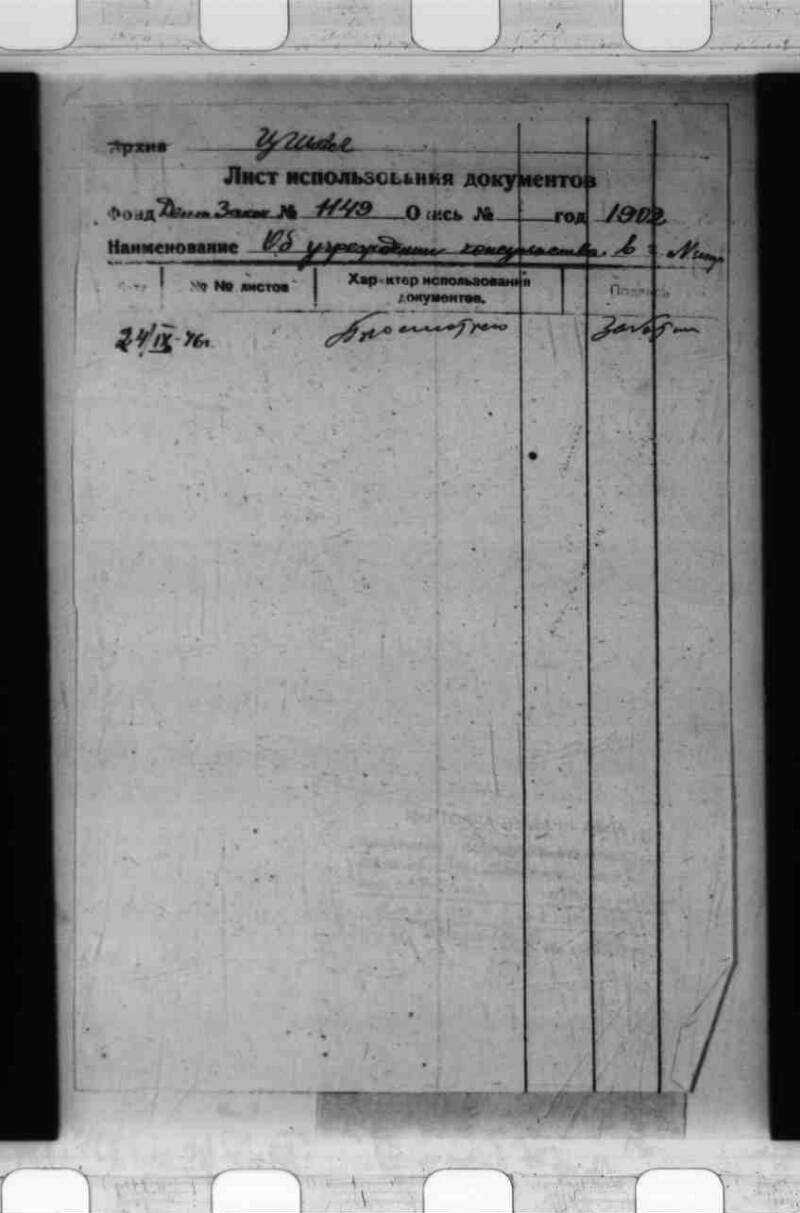 Архив ЦГИАЛ
Лист использования документов
Фонд Деп. Закон № 1149 Опись № год 1902
Наименование Об учреждении консульства в г.
Дата №№ листов Характер использования документов. Подпись
24/IX-46г. Просмотрено